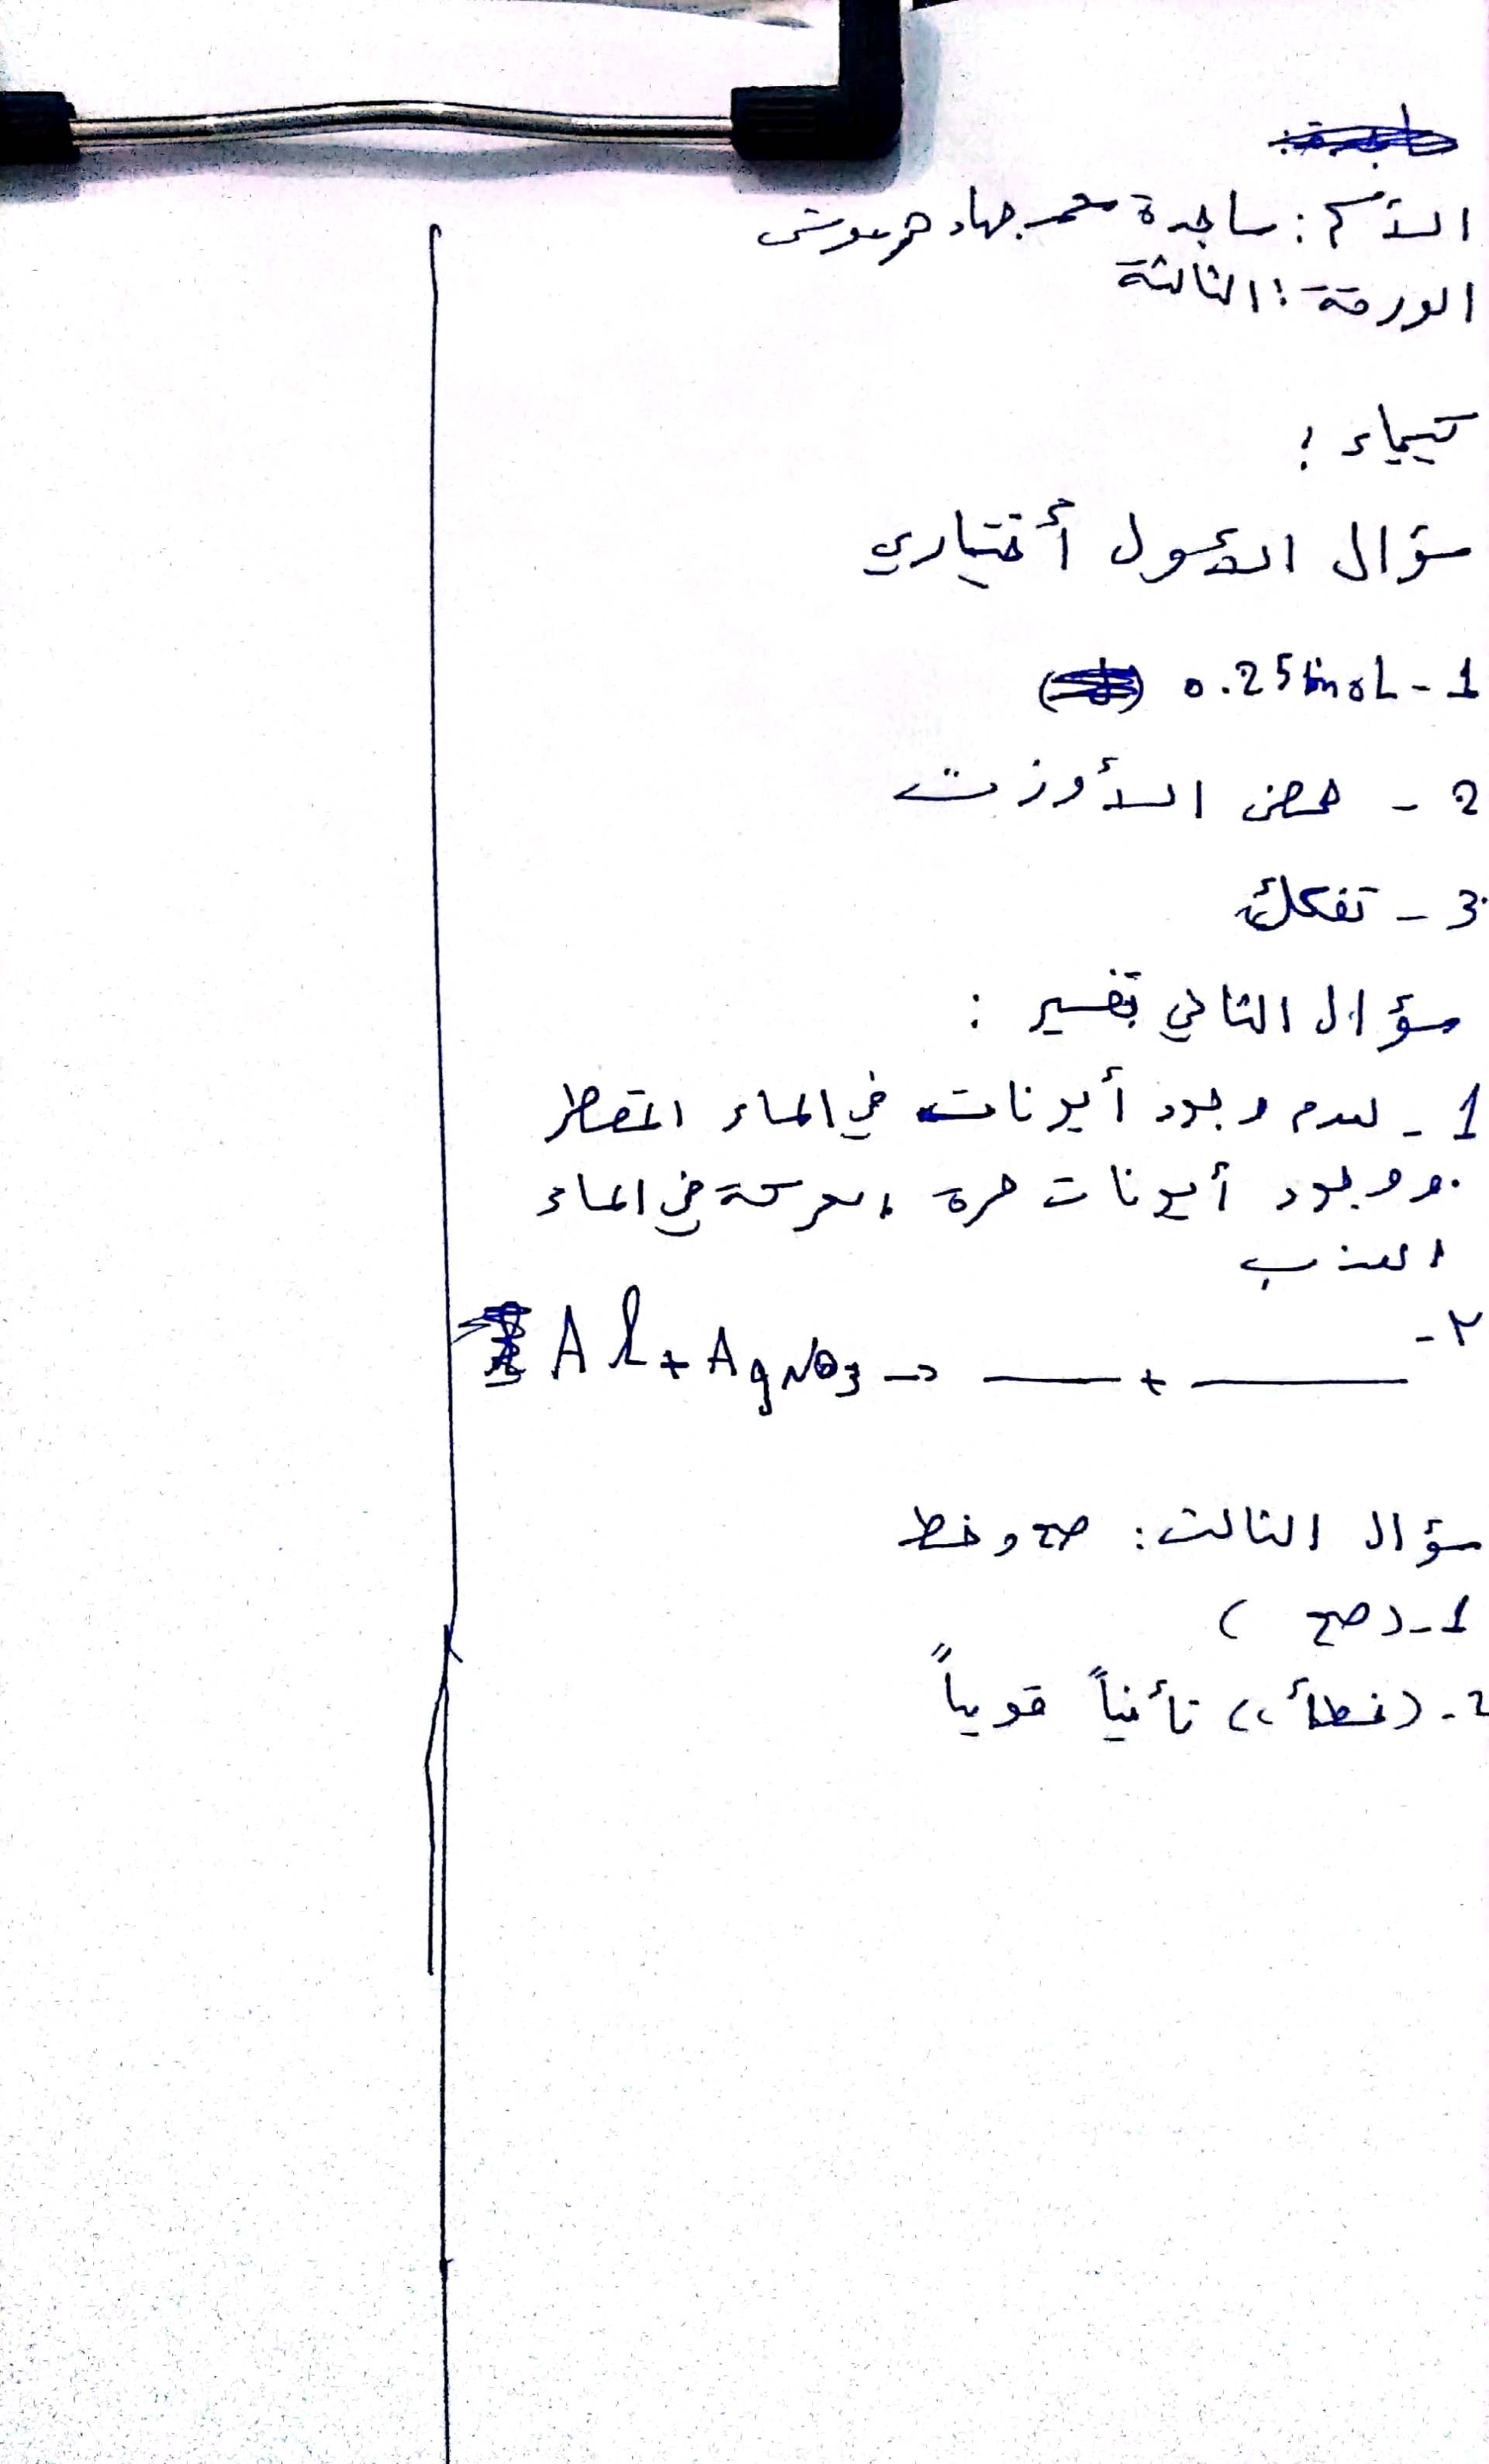 الأسم : ساجدة محمد جهاد
الورقة : الثالثة
كيمياء :
سؤال الأول أختياري
1 - 0.25 mol
2 - حمض الأزوت
3 - تفكك
سؤال الثاني تفسير :
1 - لعدم وجود أيونات في الماء المقطر
ووجود أيونات حرة الحركة في الماء
العذب
٢- Al + AgNO3 → ____ + ____
سؤال الثالث : صح وخط
1 - ( صح )
2 - (خطأ) تأيناً قوياً